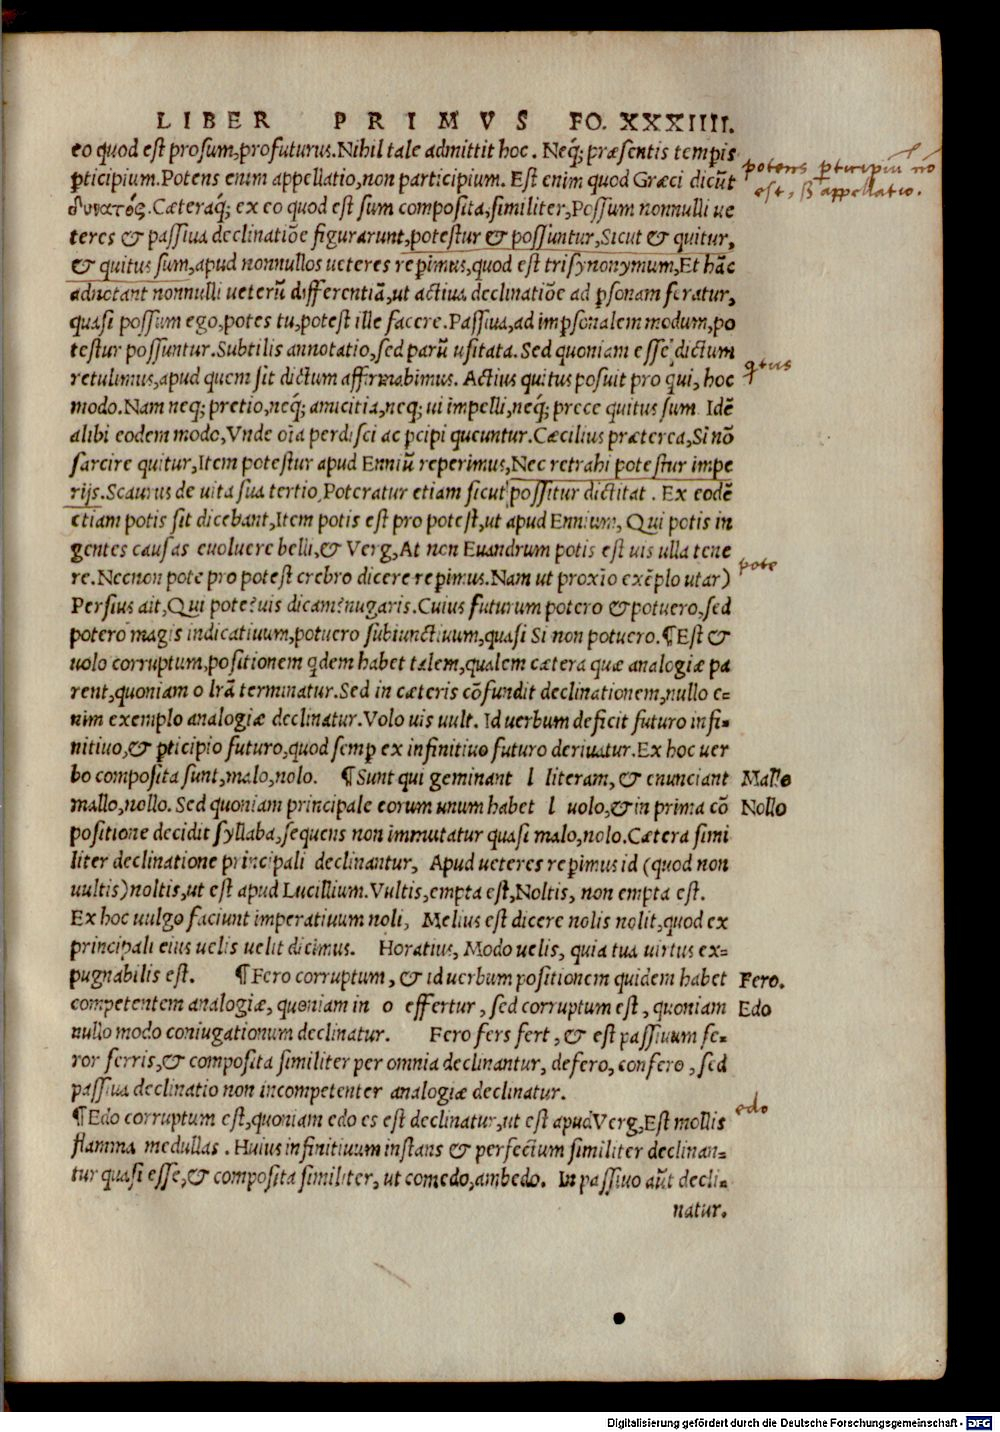 LIBER PRIMVS FO. XXXIIII.
eo quod est prosum,profuturus.Nihil tale admittit hoc. Neq; præsentis tempis
pticipium.Potens enim appellatio,non participium. Est enim quod Græci dicũt
δυνατός.Cæteraq; ex eo quod est sum composita,similiter,Possum nonnulli ue
teres & passiua declinatiõe figurarunt,potestur & possuntur,Sicut & quitur,
& quitus sum,apud nonnullos ueteres repimus,quod est trisynonymum,Et hãc
adnotant nonnulli ueterũ differentiã,ut actiua declinatiõe ad psonam feratur,
quasi possum ego,potes tu,potest ille facere.Passiua,ad impsonalem modum,po
testur possuntur.Subtilis annotatio,sed parũ usitata.Sed quoniam esse dictum
retulimus,apud quem sit dictum affirmabimus. Actius quitus posuit pro qui, hoc
modo.Nam neq; pretio,neq; amicitia,neq; ui impelli,neq; prece quitus sum Idẽ
alibi eodem modo,Vnde oĩa perdisci ac pcipi queuntur.Cæcilius præterea,Si nõ
sarcire quitur,Item potestur apud Enniũ reperimus,Nec retrahi potestur impe
rijs.Scaurus de uita sua tertio,Poteratur etiam sicut possitur dictitat. Ex eodẽ
etiam potis sit dicebant,Item potis est pro potest,ut apud Ennium, Qui potis in
gentes causas euoluere belli,& Verg,At non Euandrum potis est uis ulla tene
re.Necnon pote pro potest crebro dicere repimus.Nam ut proxĩo exẽplo utar)
Persius ait,Qui pote?uis dicam?nugaris.Cuius futurum potero & potuero,sed
potero magis indicatiuum,potuero subiunctiuum,quasi Si non potuero.¶Est &
uolo corruptum,positionem qdem habet talem,qualem cætera quæ analogiæ pa
rent,quoniam o lrã terminatur.Sed in cæteris cõfundit declinationem,nullo e=
nim exemplo analogiæ declinatur.Volo uis uult. Id uerbum deficit futuro infi=
nitiuo,& pticipio futuro,quod semp ex infinitiuo futuro deriuatur.Ex hoc uer
bo composita sunt,malo,nolo. ¶Sunt qui geminant l literam,& enunciant
mallo,nollo. Sed quoniam principale eorum unum habet l uolo,& in prima cõ
positione decidit syllaba,sequens non immutatur quasi malo,nolo.Cætera simi
liter declinatione principali declinantur, Apud ueteres repimus id (quod non
uultis)noltis,ut est apud Lucillium.Vultis,empta est,Noltis, non empta est.
Ex hoc uulgo faciunt imperatiuum noli, Melius est dicere nolis nolit,quod ex
principali eius uelis uelit dicimus. Horatius, Modo uelis, quia tua uirtus ex=
pugnabilis est. ¶Fero corruptum, & id uerbum positionem quidem habet
competentem analogiæ, quoniam in o effertur, sed corruptum est, quoniam
nullo modo coniugationum declinatur. Fero fers fert, & est passiuum fe=
ror ferris,& composita similiter per omnia declinantur, defero, confero, sed
passiua declinatio non incompetenter analogiæ declinatur.
¶Edo corruptum est,quoniam edo es est declinatur,ut est apud Verg,Est mollis
flamma medullas. Huius infinitiuum instans & perfectum similiter declinan=
tur quasi esse,& composita similiter, ut comedo,ambedo. In passiuo aũt decli=
natur.
potens pticipiũ nõ
est, ß appellatio.
qtus
pote
Mallo
Nollo
Fero.
Edo
edo
Digitalisierung gefördert durch die Deutsche Forschungsgemeinschaft - DFG